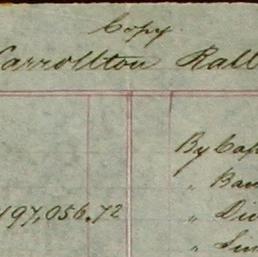 Copy.
Carrollton Rail
By Cap
" Ban
497,056.72 " Div
" Sun